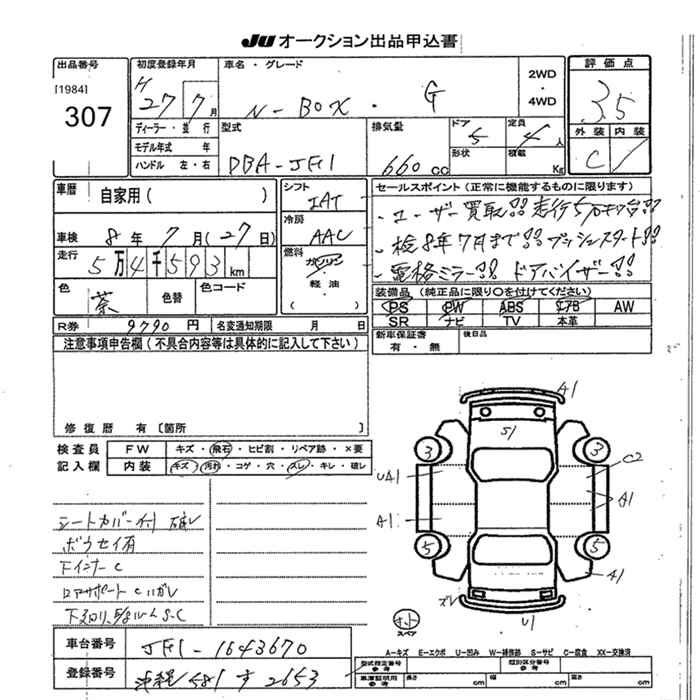 JU オークション出品申込書
出品番号
[1984]
307
初度登録年月
H
27 7月
ディーラー・並行
モデル年式 年
ハンドル 左・右
車名・グレード
N-BOX・G
2WD
・
4WD
評価点
3.5
外装 内装
C
型式
DBA-JF1
排気量
660cc
ドア
5
形状
定員
4人
積載
Kg
車歴
自家用( )
車検 8年 7月(27日)
走行
5万4千593km
色
茶
色替
色コード
R券 9790円 名変通知期限 月 日
シフト
IAT
冷房
AAC
燃料
ガソリン
・
軽油
( )
セールスポイント(正常に機能するものに限ります)
・ユーザー買取!!走行5万キロ台!!
・検8年7月まで!!プッシュスタート!!
・電格ミラー!! ドアバイザー!!
装備品(純正品に限り○を付けてください)
PS PW ABS エアB AW
SR ナビ TV 本革
新車保証書
有・無
後日品
注意事項申告欄(不具合内容等は具体的に記入して下さい)
修復歴 有〔箇所 〕
検査員
記入欄
FW キズ・飛石・ヒビ割・リペア跡・×要
内装 キズ・汚れ・コゲ・穴・スレ・キレ・破レ
シートカバー付 破レ
ボウセイ有
下インナーC
ロアサポートCハガレ
A1
S1
3
3
C2
UA1
A1
A1
5
5
A1
ズレ
U1
ホット
スペア
A-キズ E-エクボ U-凹み W-補修跡 S-サビ C-腐食 XX-交換済
車台番号 JF1-1643670
登録番号 沖縄 581 す 2653
型式指定番号
参考
類別区分番号
参考
車庫証明用
参考
長さ cm
幅 cm
高さ cm